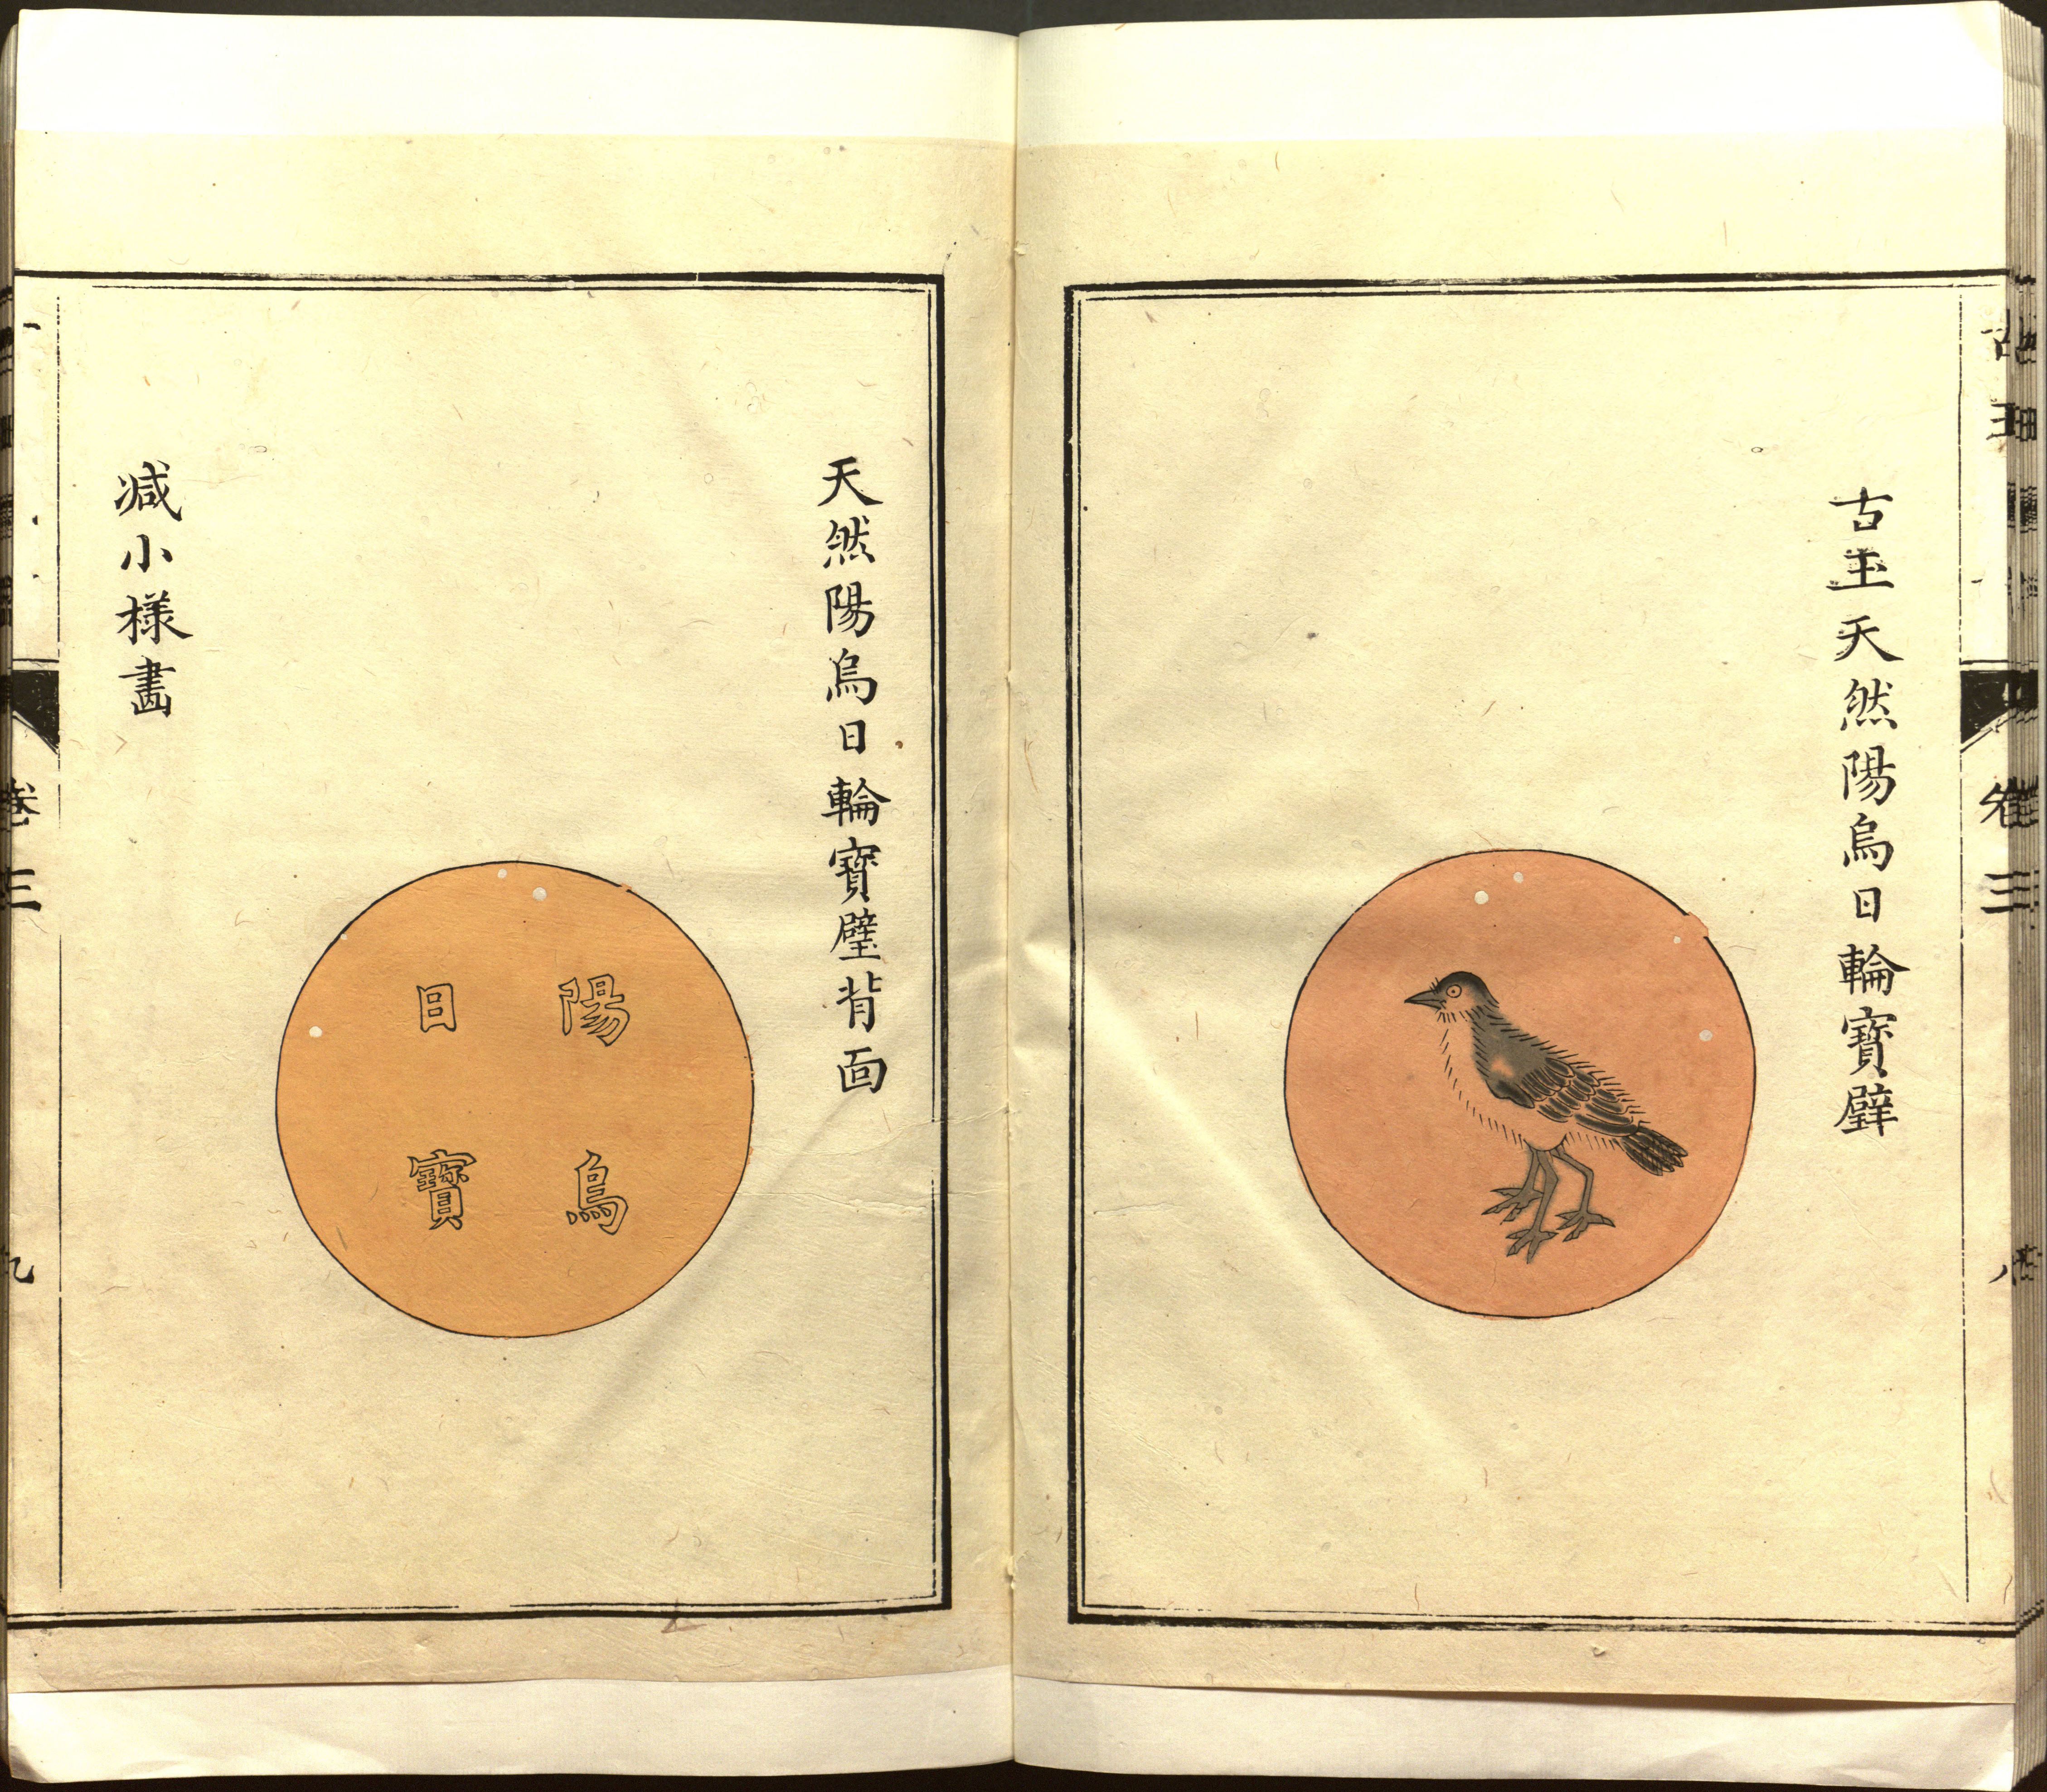 古玉天然陽烏日輪寶璧
卷三
天然陽烏日輪寶璧背面
陽烏
日寶
减小樣畵
卷三
九